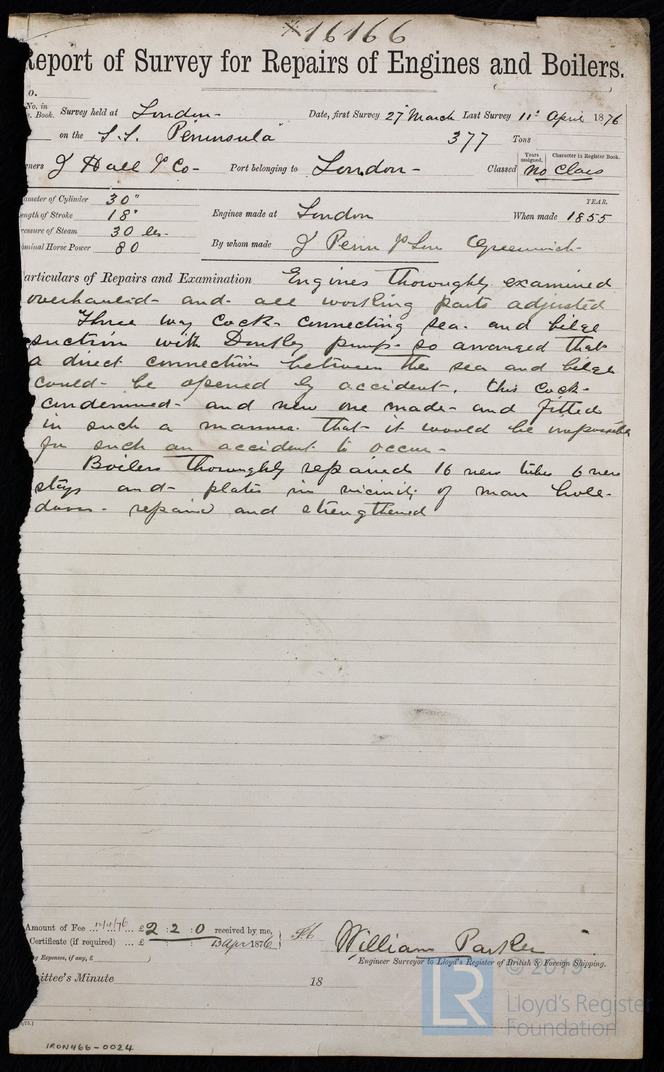 16166
Report of Survey for Repairs of Engines and Boilers.
o.
No. in
Book. Survey held at London Date, first Survey 27 March Last Survey 11th April 1876
on the S.S. Peninsula 377 Tons
ners J Hall Jr & Co Port belonging to London Classed Years assigned. Character in Register Book. No Class
ameter of Cylinder 30"
ength of Stroke 18"
ressure of Steam 30 lbs
ominal Horse Power 80
Engines made at London When made YEAR. 1855
By whom made J Penn & Son Greenwich
articulars of Repairs and Examination Engines thoroughly examined
overhauled and all working parts adjusted
Three way cock connecting sea and bilge
suction with Donkey pump so arranged that
a direct connection between the sea and bilge
could be opened by accident. this cock
condemned and new one made and fitted
in such a manner that it would be impossible
for such an accident to occur
Boilers thoroughly repaired 16 new tubes 6 new
stays and plates in vicinity of man hole
doors repaired and strengthened
Amount of Fee £2 : 2 : 0 received by me,
Certificate (if required) £ : : 13 Apr 1876
g Expenses, if any, £
William Parker
Engineer Surveyor to Lloyd's Register of British & Foreign Shipping.
ittee's Minute 18
© 2019
LR
Lloyd's Register
Foundation
IRON466-0024